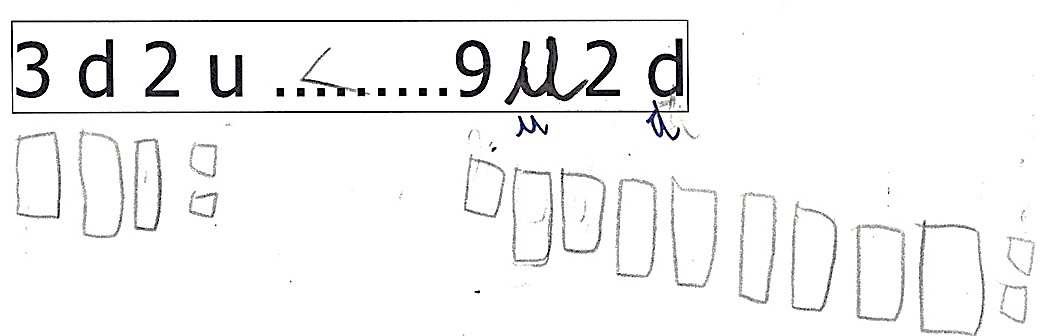 3 d 2 u ....<.....9 u 2 d
u d